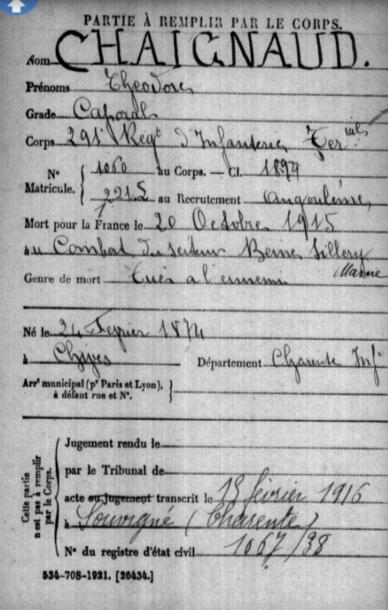 PARTIE À REMPLIR PAR LE CORPS.
Nom CHAIGNAUD.
Prénoms Théodore
Grade Caporal
Corps 291e Regt d'Infanterie Terial
N° 1060 au Corps. — Cl. 1894
Matricule. 2212 au Recrutement Angoulême
Mort pour la France le 20 Octobre 1915
au Combat du secteur Sillery
Marne
Genre de mort Tué à l'ennemi
Né le 24 Fevrier 1874
à Département Charente Infre
Arrt municipal (pr Paris et Lyon),
à défaut rue et N°.
Cette partie
n'est pas à remplir
par le Corps.
Jugement rendu le
par le Tribunal de
acte ou jugement transcrit le 18 février 1916
à Souvigné (Charente)
N° du registre d'état civil 1067/38
534-708-1921. [26434.]